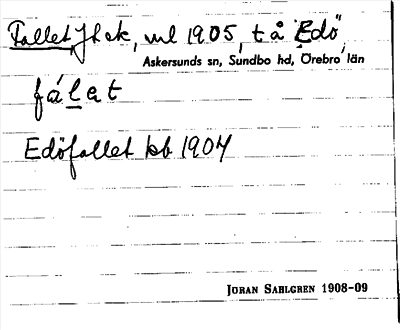 Fallet, Jh ek, ml 1905, t å Edö,
Askersunds sn, Sundbo hd, Örebro län
fálet
Edöfallet kb 1904
JORAN SAHLGREN 1908-09